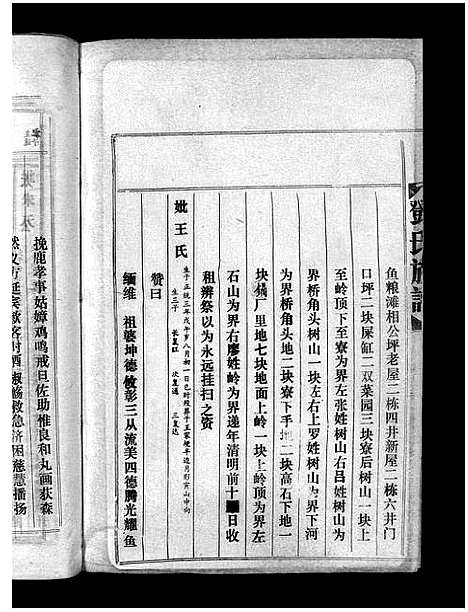 鱼粮滩相公坪老屋二栋四井新屋二栋六井门
口坪二块屎缸二双菜园三块寮后树山一块上
至岭顶下至寮为界左张姓树山右吕姓树山为
界桥角头树山一块左右上罗姓树山为界下河
为界桥角头地二块寮下手地二块高石下地一
块 厂里地七块地面上岭一块上岭顶为界左
石山为界右廖姓岭为界递年清明前十 日收
租辨祭以为永远挂扫之资
妣王氏
生于正统三年戊午岁八月初一日巳时殁葬于王家埂半边月形寅山申向
生三子 长复 次复通 三复达
赞曰
缅维 祖婆坤德敏彰三从流美四德腾光耀鱼
挽鹿孝事姑嫜鸡鸣戒旦佐助惟良和丸画荻森